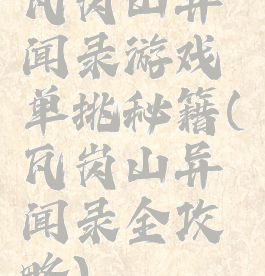 瓦岗山异
闻录游戏
单挑秘籍(
瓦岗山异
闻录全攻
略)